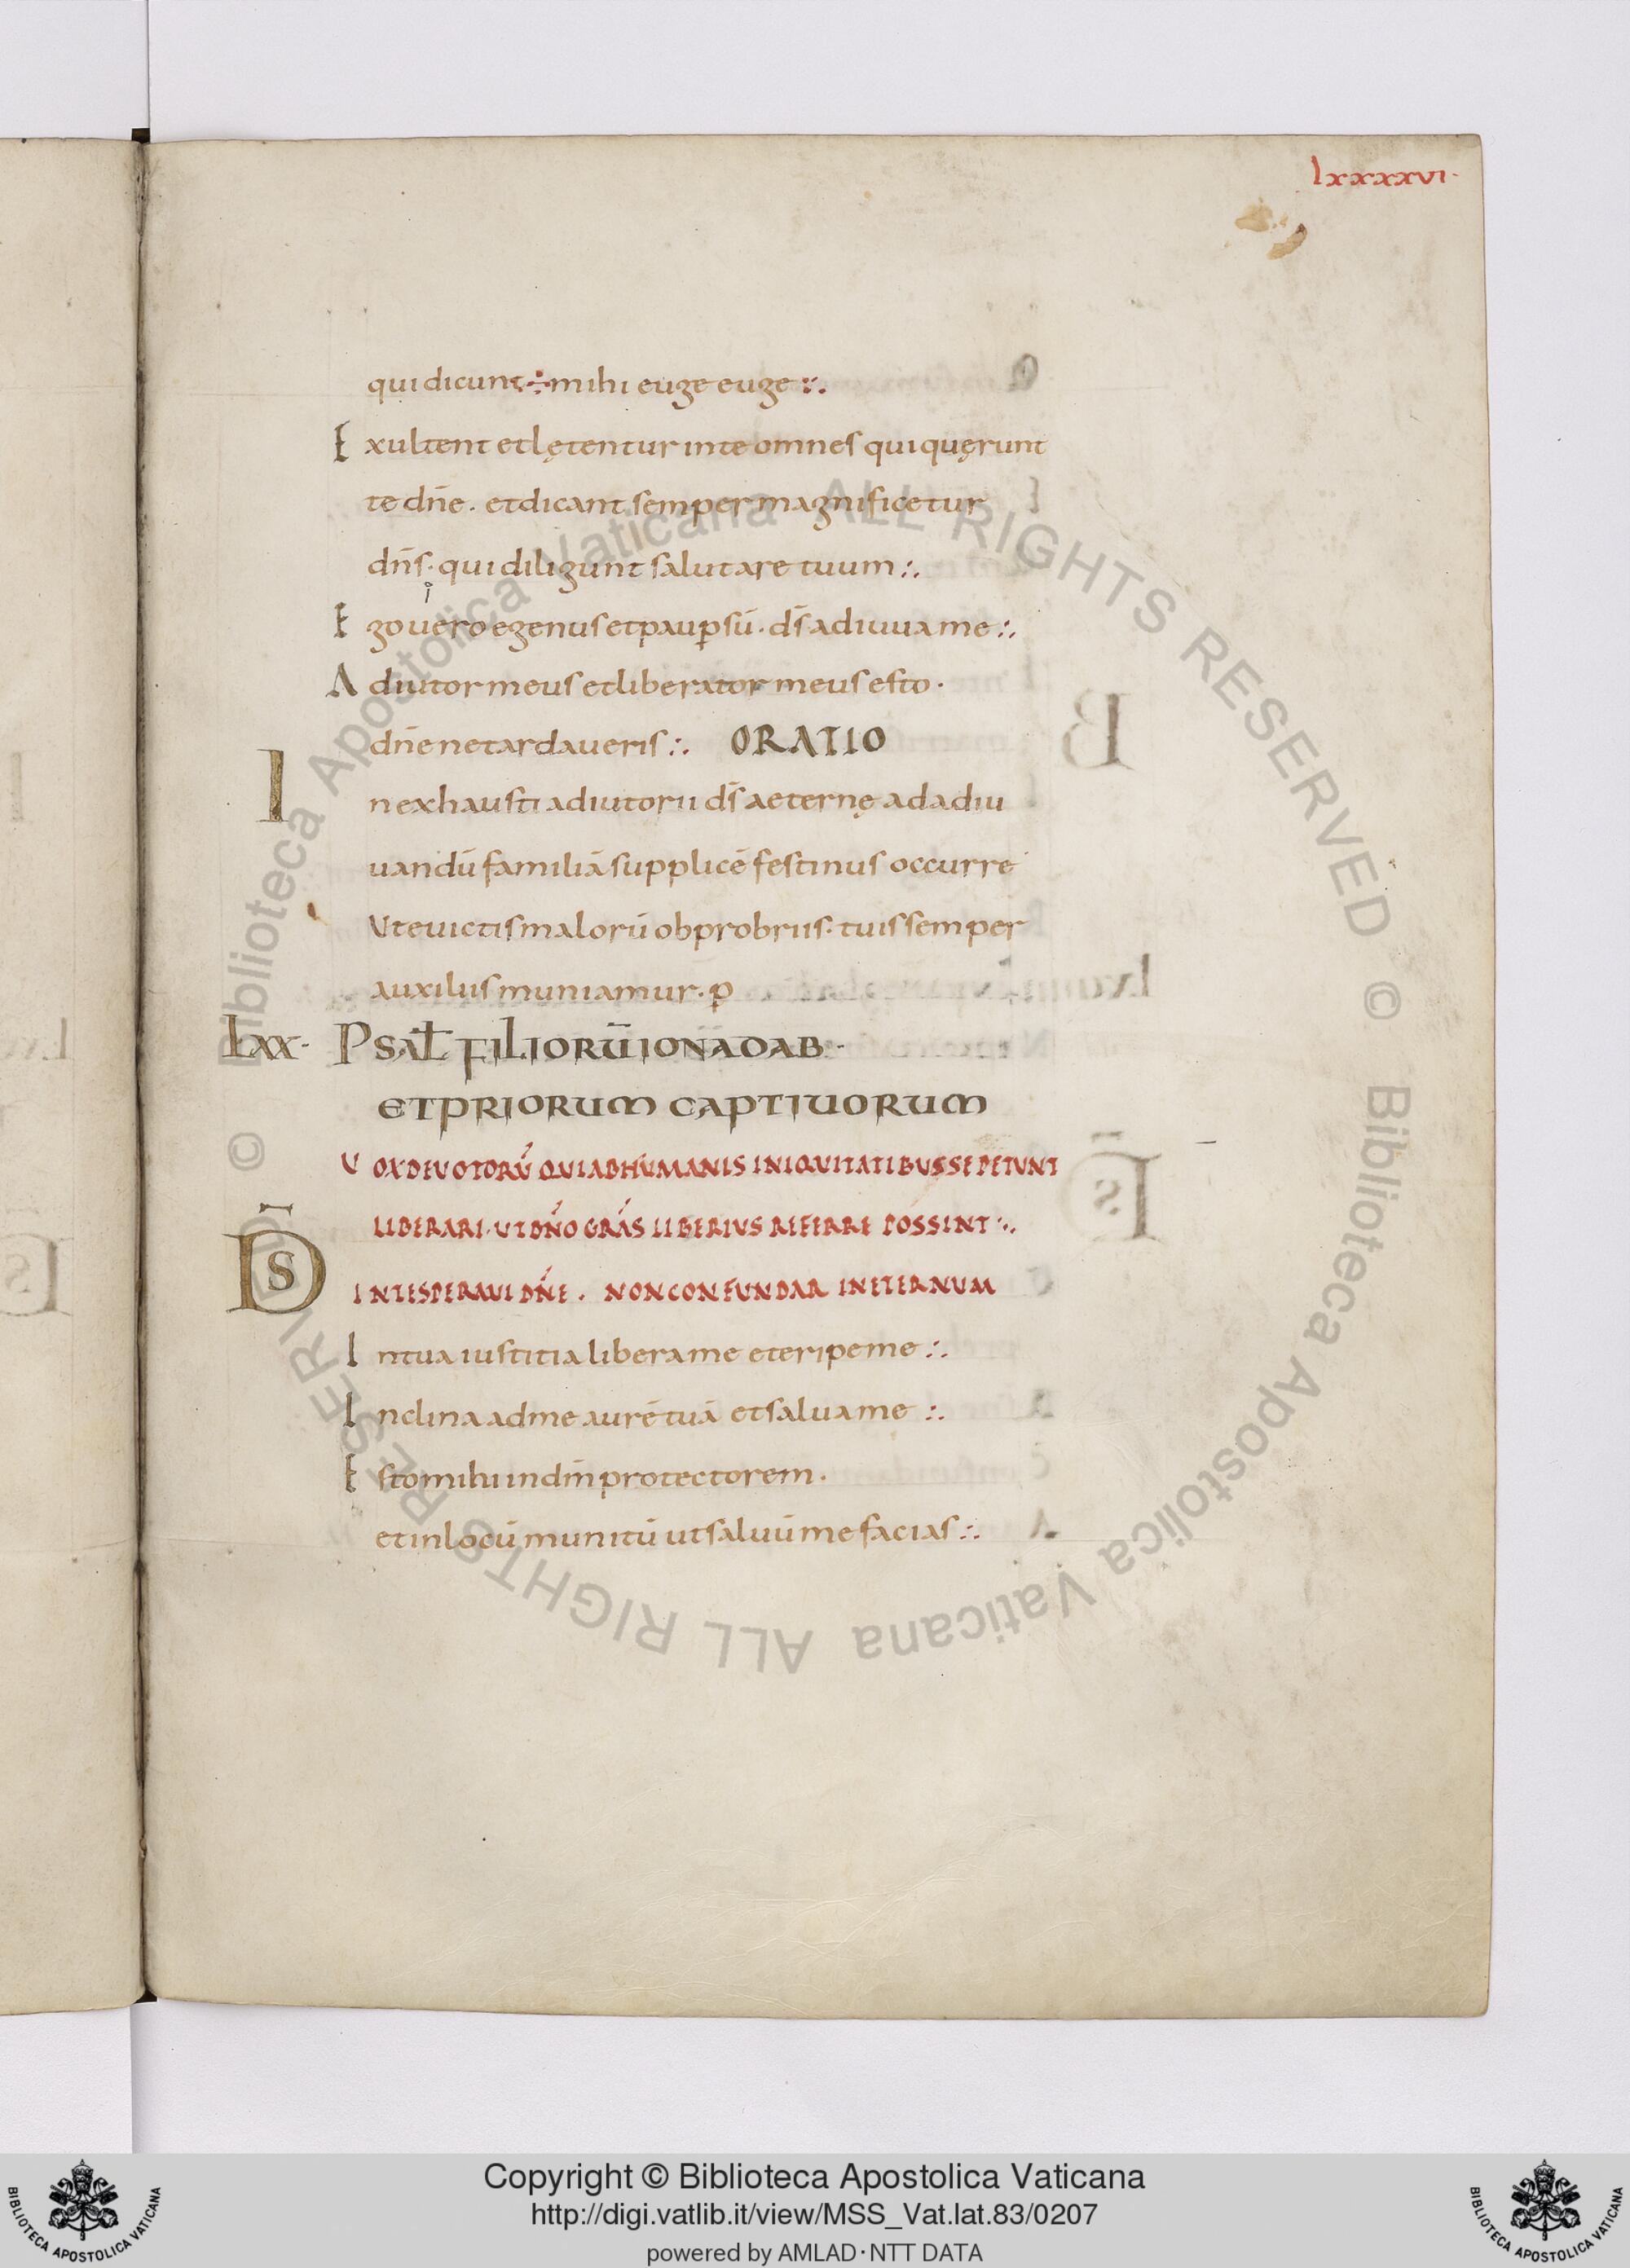 lxxxxvi·
qui dicunt ÷ mihi euge euge :.
Exultent et lętentur in te omnes qui quęrunt
te dn̄e . et dicant semper magnificetur
dn̄s · qui diligunt salutare tuum :.
Ego uero egenus et paup̱ sū · ds̄ adiuua me :.
Adiutor meus et liberator meus esto ·
dn̄e ne tardaueris :. ORATIO
Inexhausti adiutorii ds̄ aeternę ad adiu
uandū familiā supplicē festinus occurre
Ut euictis malorū obprobriis · tuis semper
auxiliis muniamur · p̱
Lxx · PSAL̄ FILIORŪ IONADAB ·
ET PRIORUM CAPTIUORUM
UOX DEUOTORŪ QUI AB HUMANIS INIQUITATIBUS SE PETUNT
LIBERARI · UT DN̄O GRĀS LIBERIUS REFERRE POSSINT :.
DS̄ IN TE SPERAUI DN̄E . NON CONFUNDAR IN ETERNUM
In tua iustitia libera me et eripe me :.
Inclina ad me aurē tuā et salua me :.
Esto mihi in dm̄ protectorem .
et in locū munitū ut saluū me facias :.
© Biblioteca Apostolica Vaticana ALL RIGHTS RESERVED © Biblioteca Apostolica Vaticana ALL RIGHTS RESERVED
Copyright © Biblioteca Apostolica Vaticana
http://digi.vatlib.it/view/MSS_Vat.lat.83/0207
powered by AMLAD·NTT DATA
BIBLIOTECA APOSTOLICA VATICANA
BIBLIOTECA APOSTOLICA VATICANA